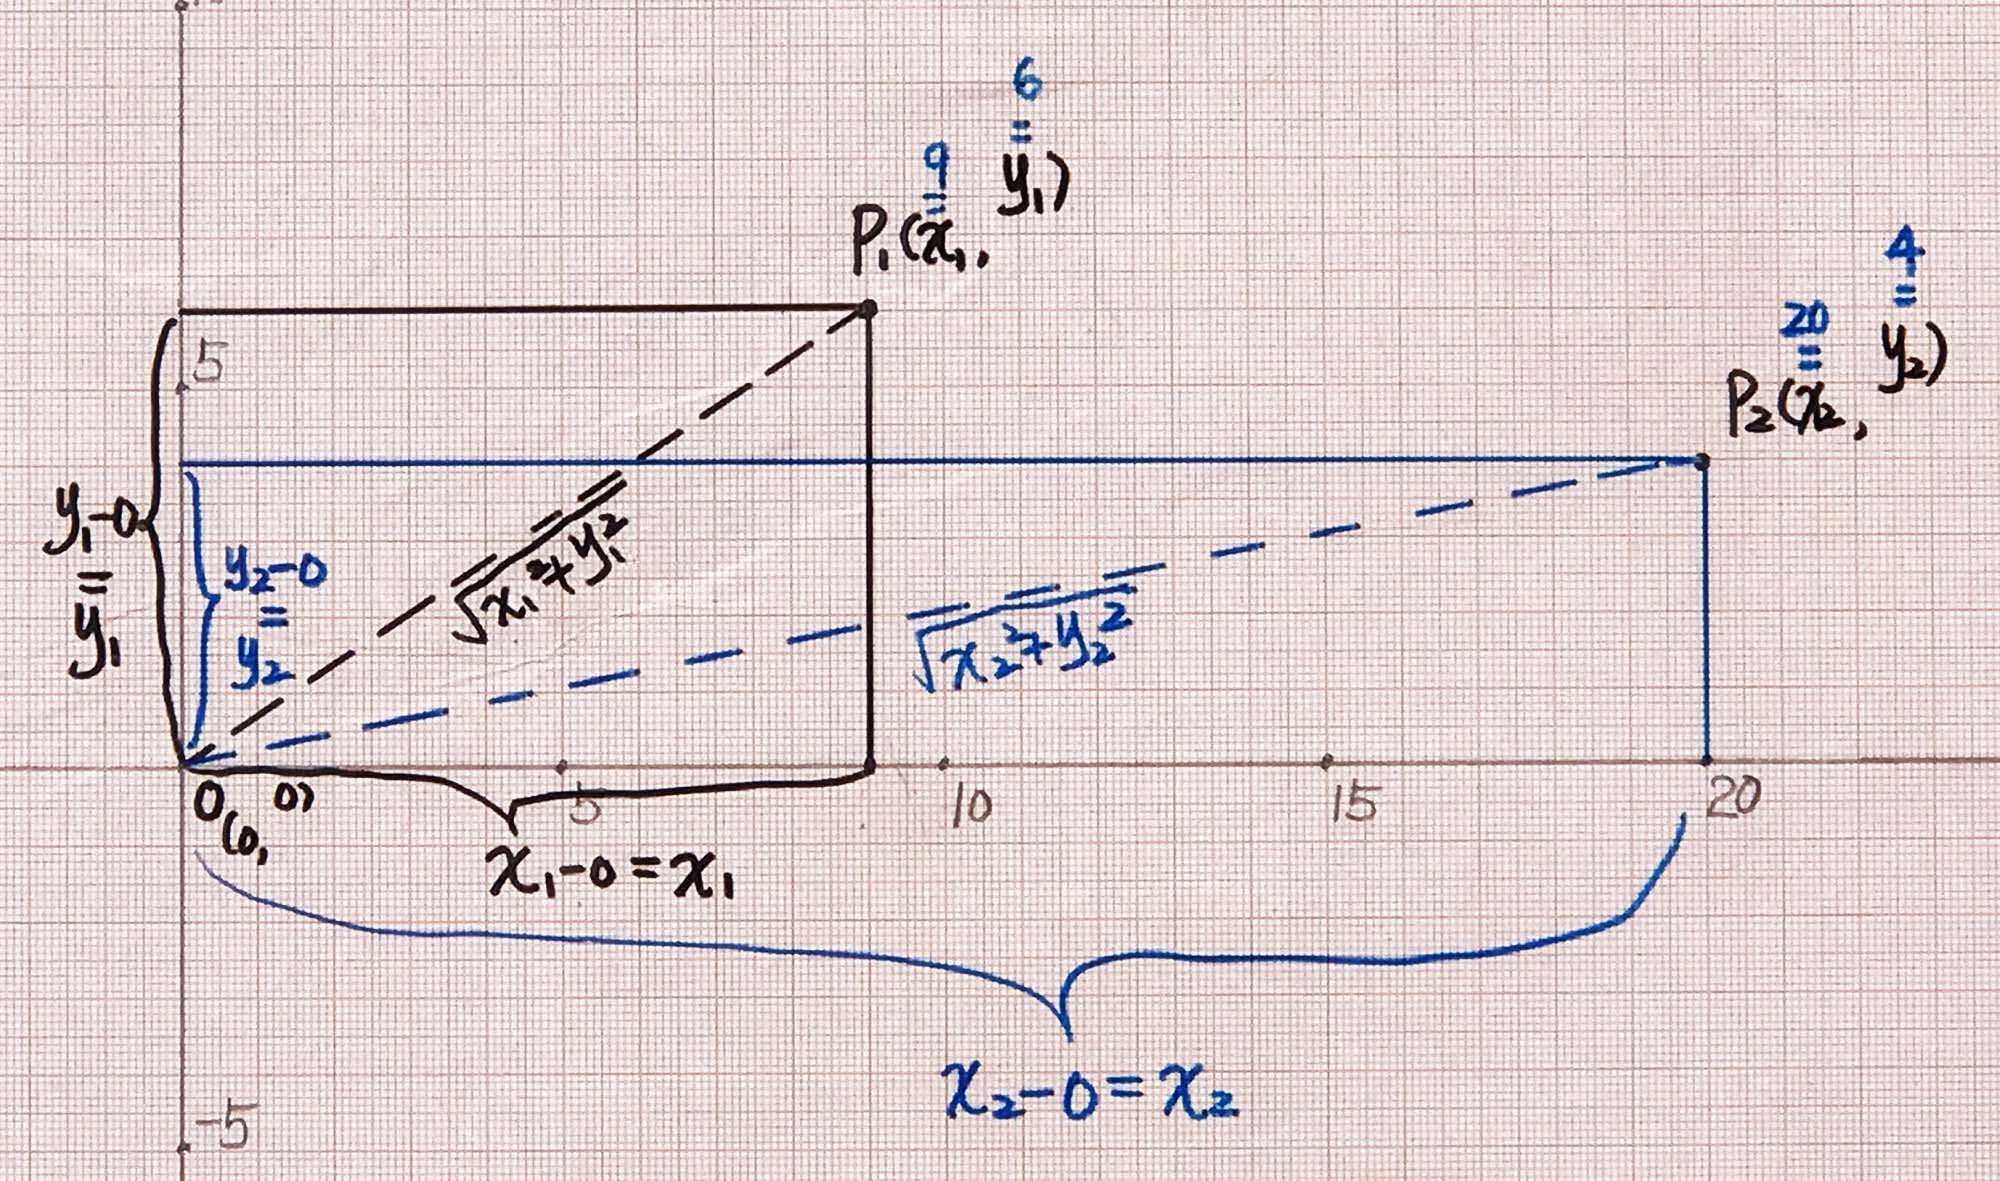 6
=
9 y₁)
=
P₁(x₁,
4
=
20 y₂)
=
P₂(x₂,
5
y₁-0
=
y₁
y₂-0
=
y₂
√x₁²+y₁²
√x₂²+y₂²
0(0, 0)
5 10 15 20
x₁-0=x₁
x₂-0=x₂
-5